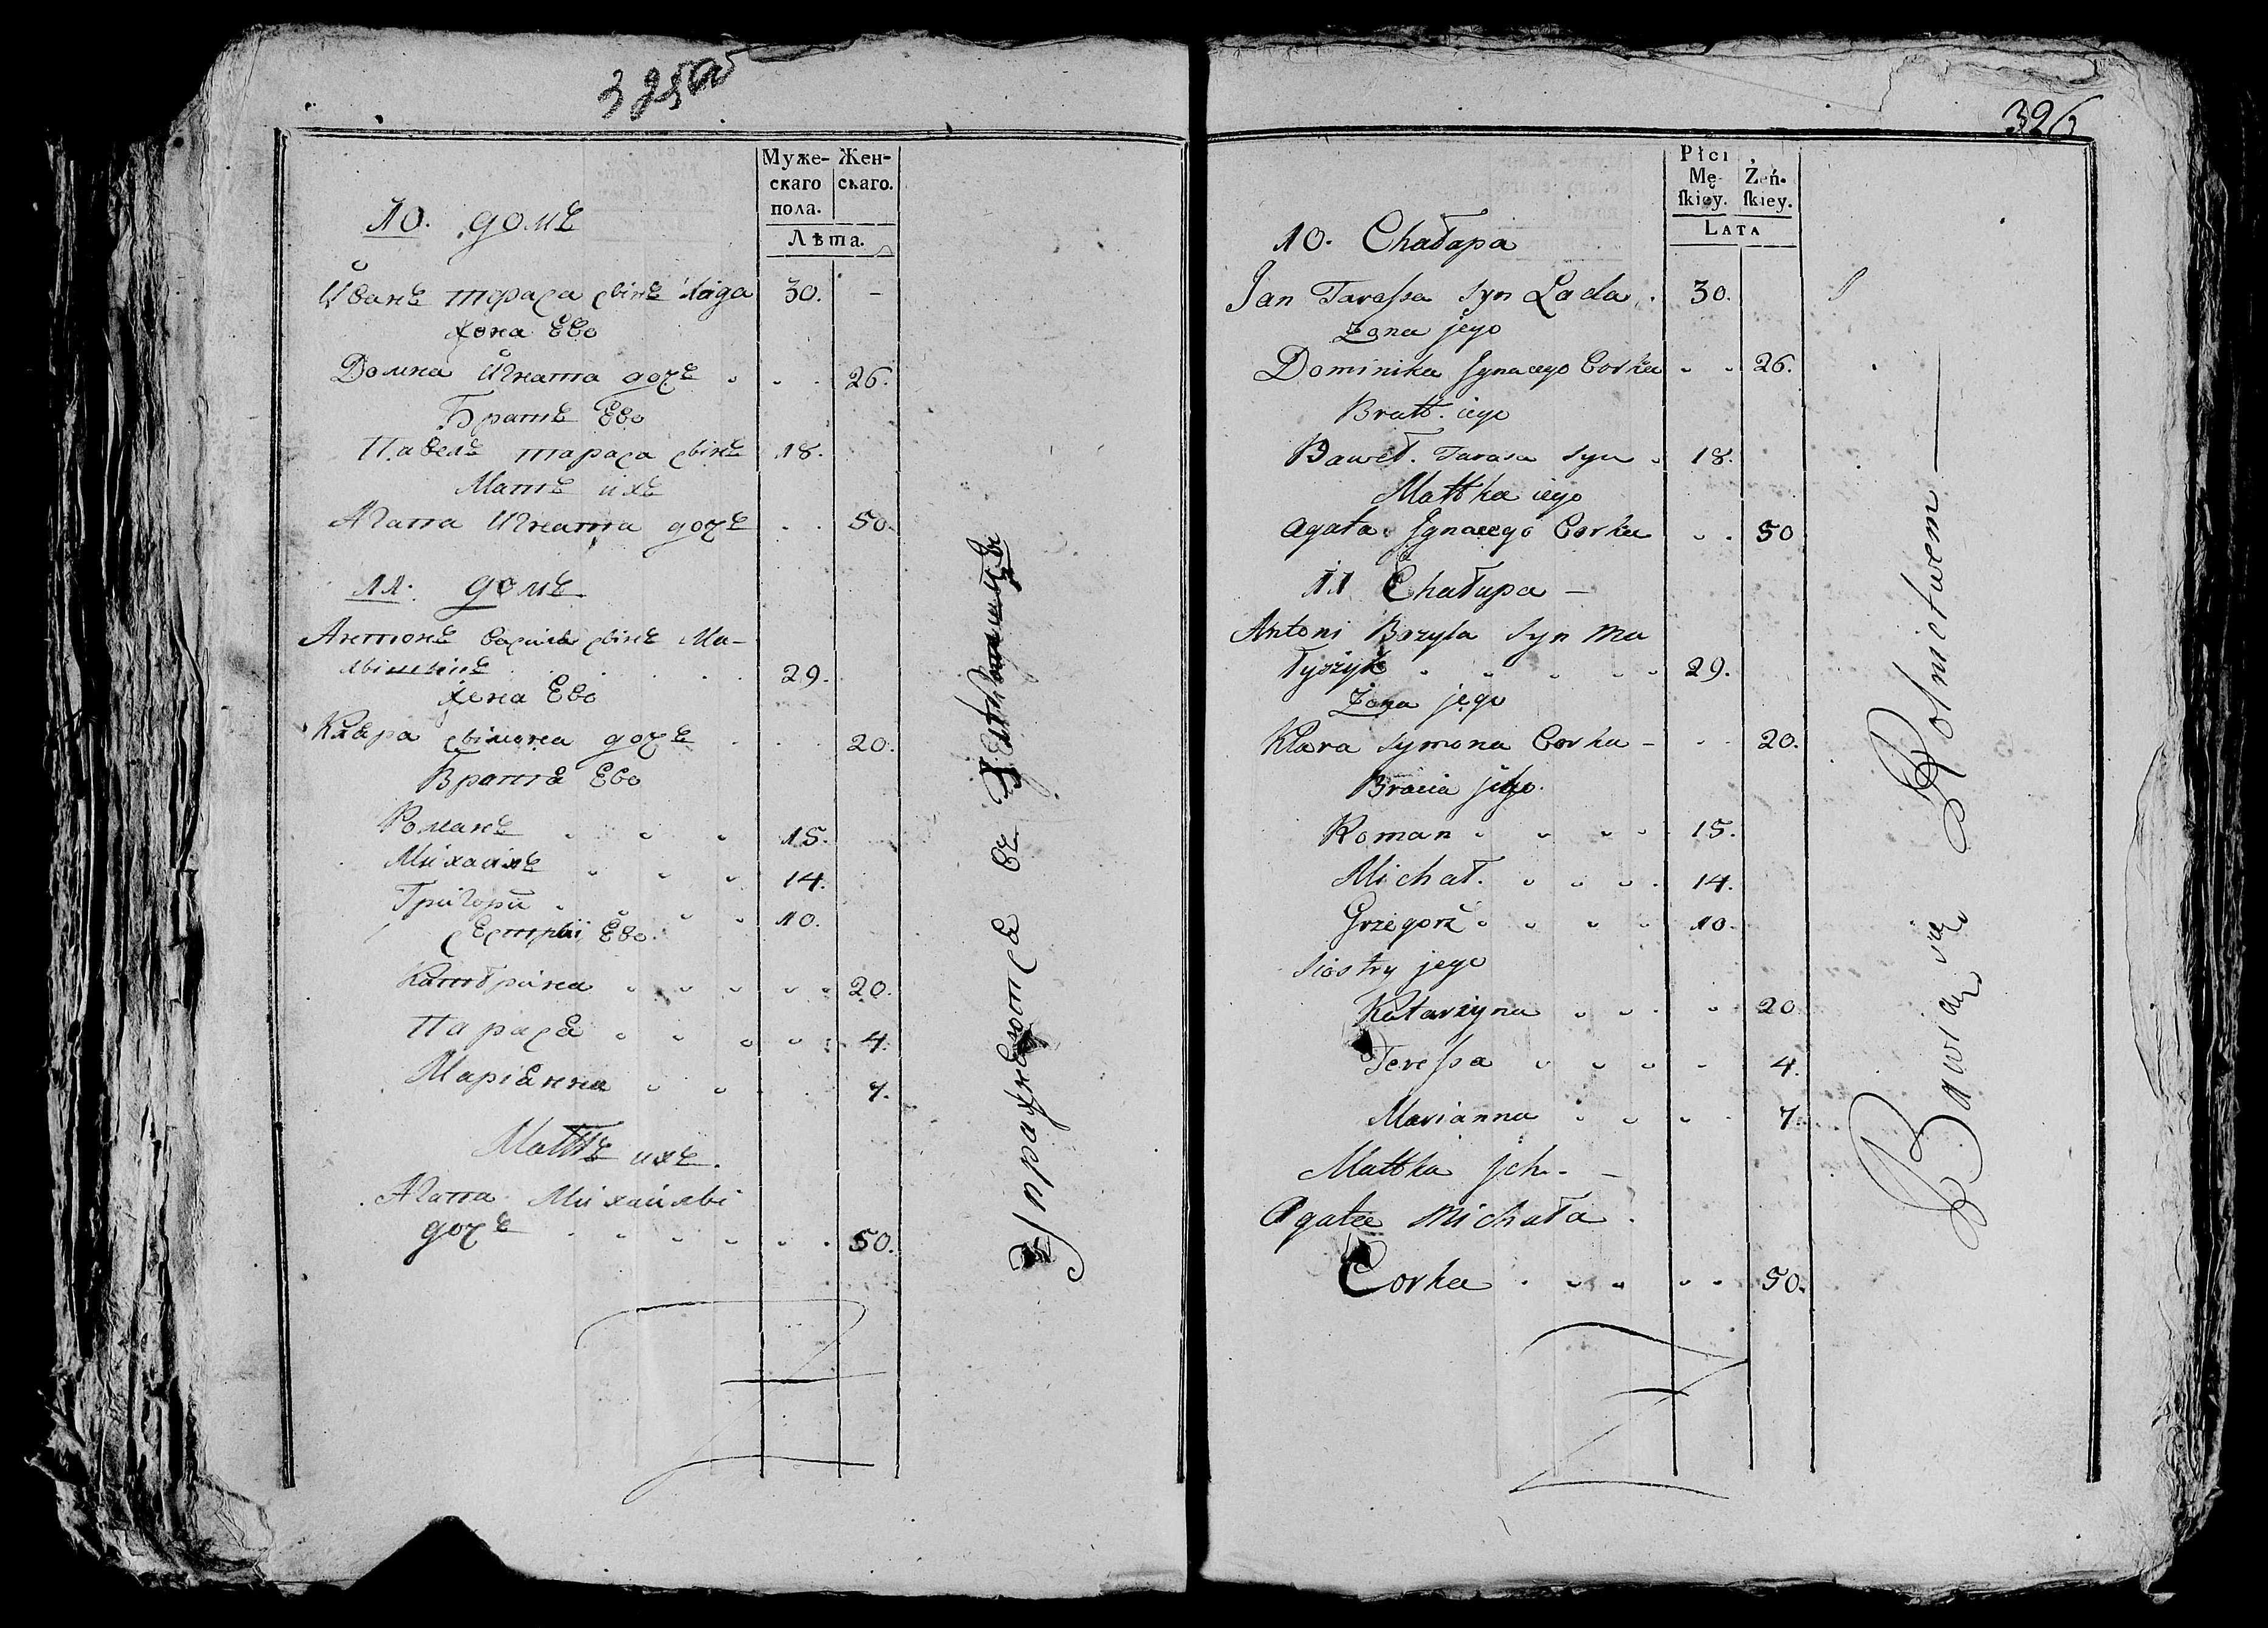 325об
Муже-
скаго
пола.
Жен-
скаго.
Лѣта.
10. домъ
Иванъ тараса сынъ Лада 30. -
жона Ево
Домна Игната дочъ 26.
Братъ Ево
Павелъ тараса сынъ 18.
Матъ ихъ
Агата Игната дочъ 50.
11. домъ
Антонъ василя сынъ Ма-
29.
жена Ево
Клара сымона дочъ 20.
Братїа Ево
Романъ 15.
Михаилъ 14.
Григори 10.
сестры Ево
Катерина 20.
Параса 4.
Марїанна 7.
Матъ ихъ.
Агата Михаилы
дочъ 50.
Упражняются въ
326
Płci
Mę-
ſkiey.
Żeń-
ſkiey.
LATA
10. Chałapa
Jan Taraſsa syn Lada 30.
Zona jego
Dominika Jgnacego Corka 26.
Bratt. iego
Paweł. Tarasa syn 18.
Mattka iego
Agata Jgnacego Corka 50
11 Chałupa -
Antoni Bazyla syn Ma
łyszyk 29.
Zona jego
Klara Symona Corka - 20.
Bracia jego.
Roman 15.
Michał. 14.
Grzegorz 10.
Siostry jego
Katarzyna 20
Tereſsa 4.
Marianna 7.
Mattka jch. -
Agata Michała
Corka 50.
Bawią się Rolnictwem